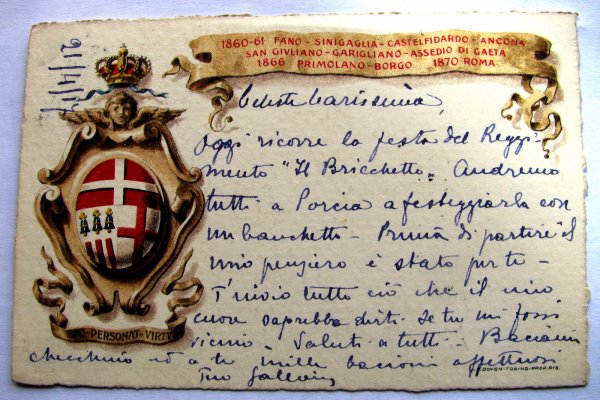 1860-61 FANO - SINIGAGLIA - CASTELFIDARDO - ANCONA
SAN GIVLIANO - GARIGLIANO - ASSEDIO DI GAETA
1866 PRIMOLANO - BORGO 1870 ROMA
21/4/17
Celeste Carissima,
Oggi ricorre la festa del Reggi-
mento "Il Bricchetto". Andremo
tutti a Porcia a festeggiarla con
un banchetto - Prima di partire il
mio pensiero è stato per te -
T'invio tutto ciò che il mio
cuore saprebbe dirti se tu mi fossi
vicino - Saluti a tutti - Baciami
checchino ed a te mille bacioni affettuosi
Tuo
PERSONAT - VIRTV
DOYEN - TORINO - PROP. RIS.